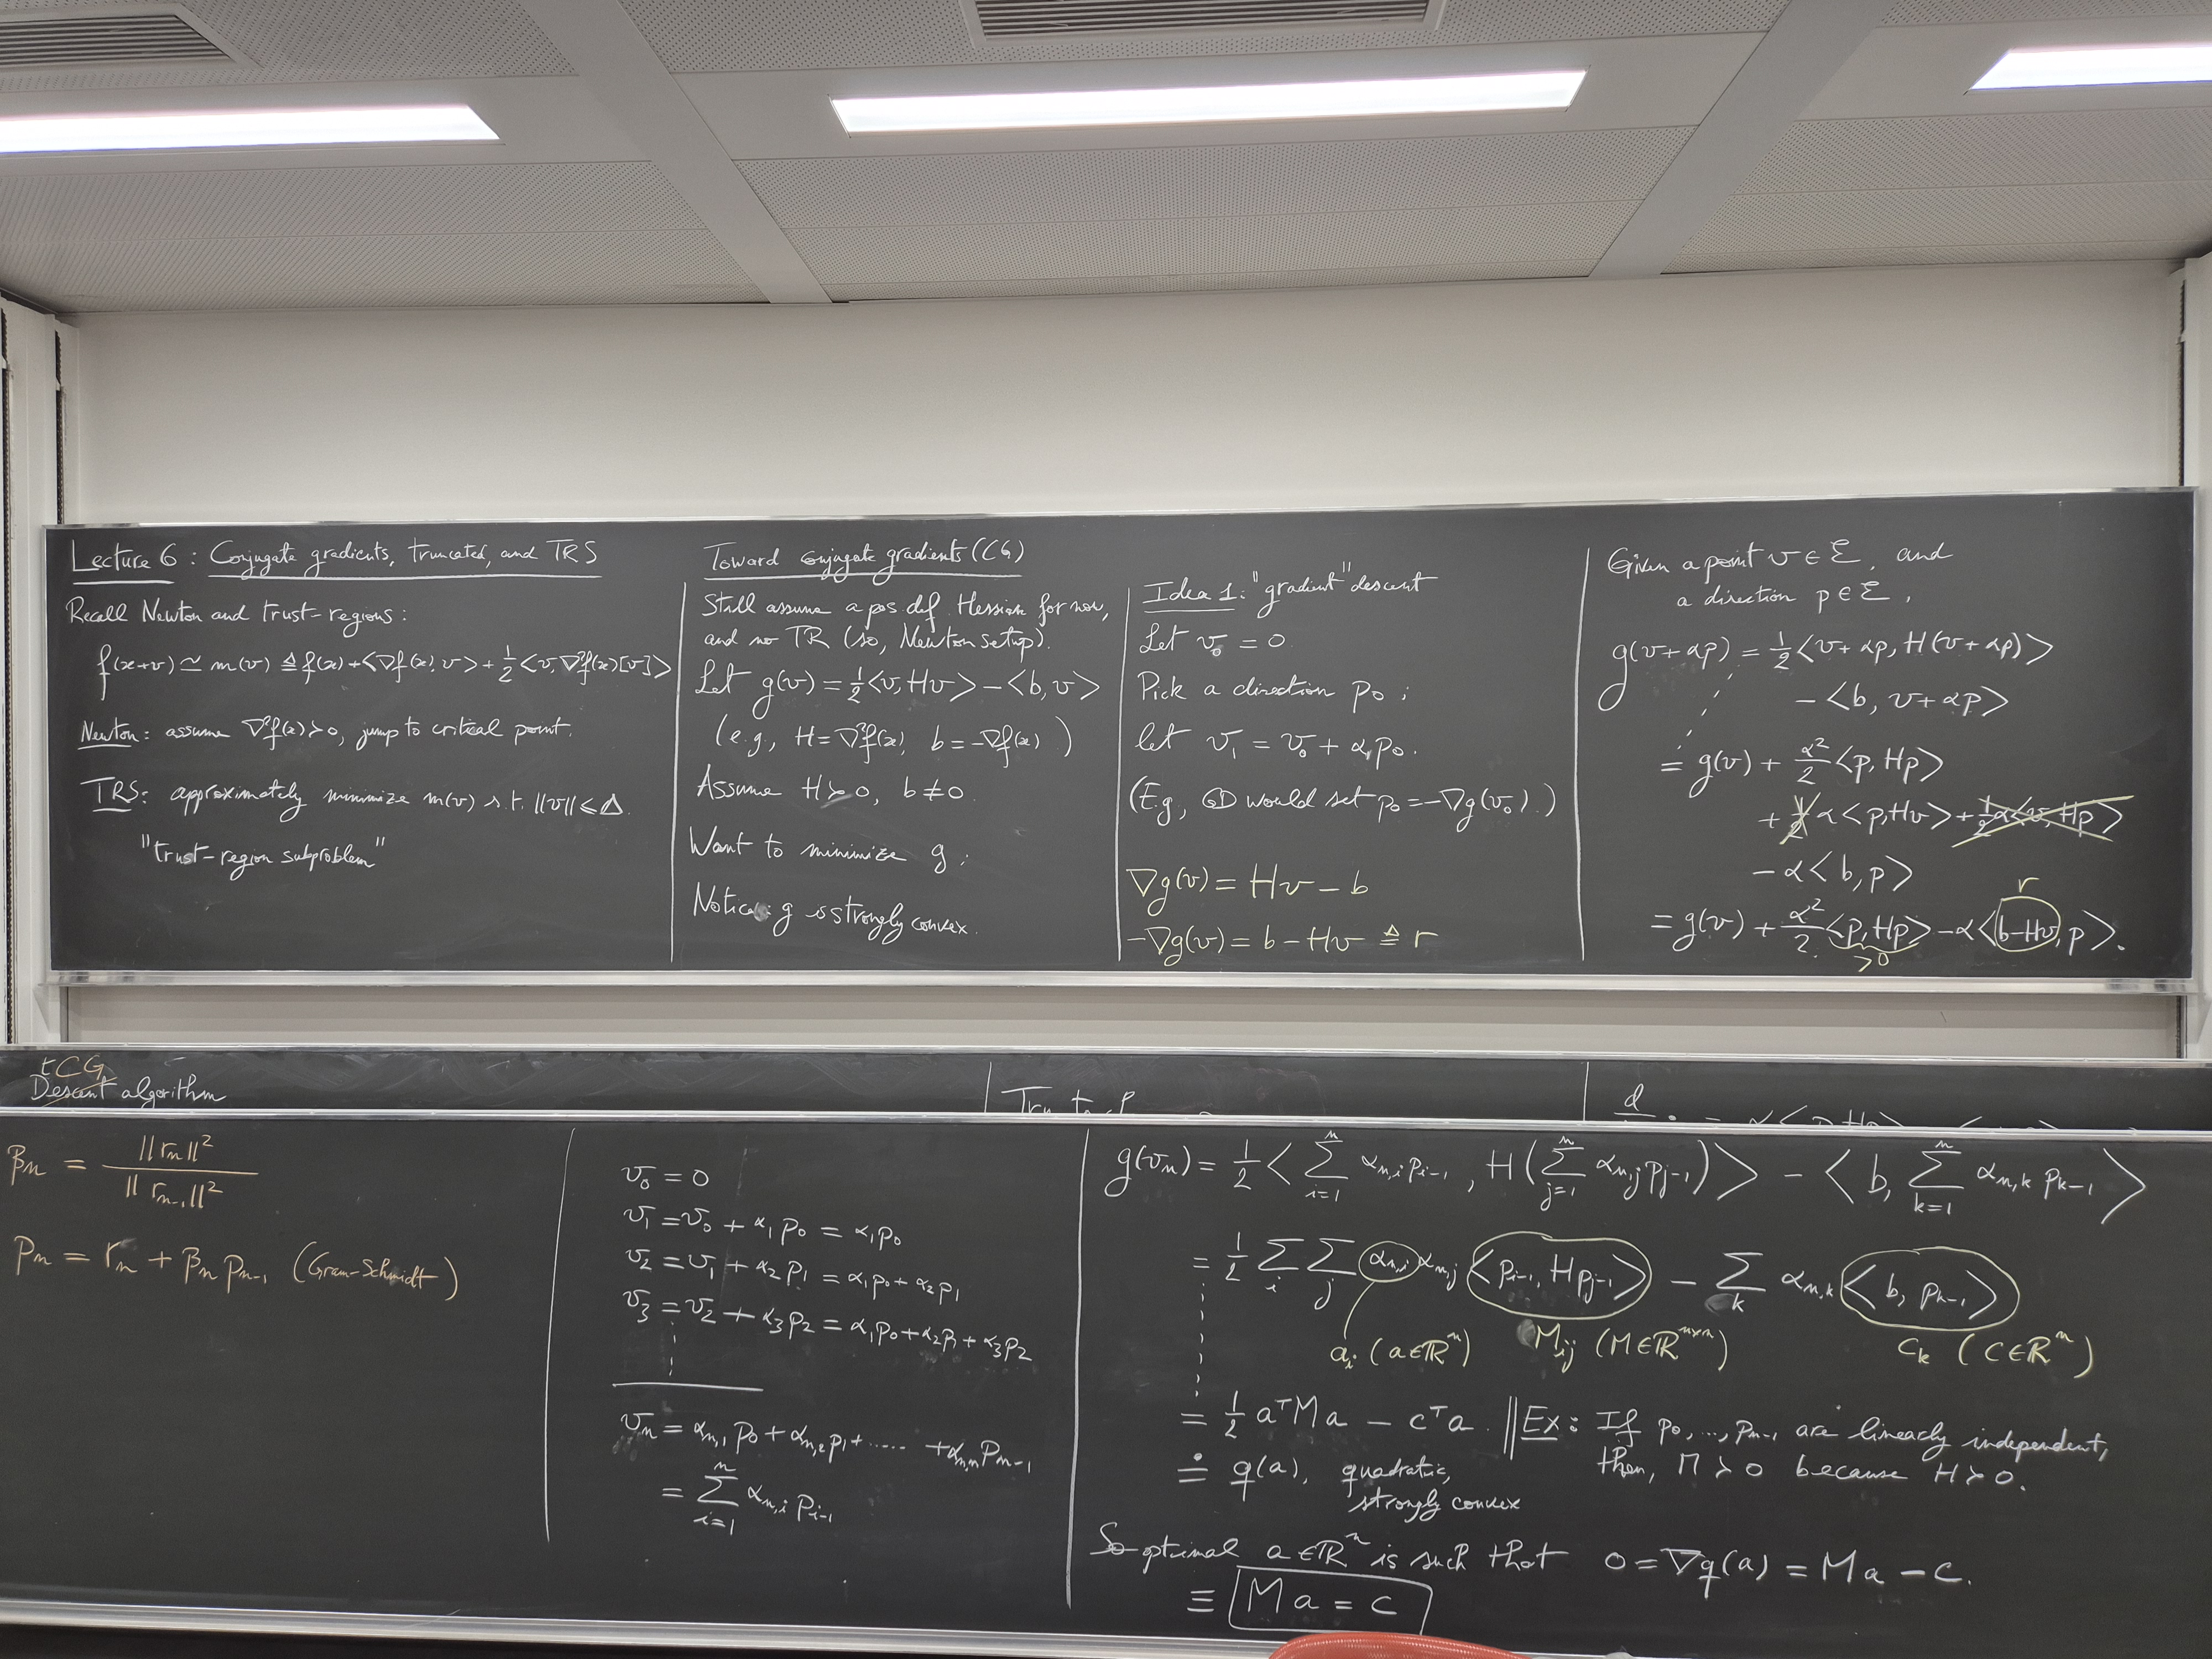 Lecture 6 : Conjugate gradients, truncated, and TRS
Recall Newton and trust-regions :
f(x+v) ≃ m(v) ≜ f(x) + <∇f(x), v> + 1/2 <v, ∇²f(x)[v]>
Newton : assume ∇²f(x) ≻ 0, jump to critical point.
TRS : approximately minimize m(v) s.t. ||v|| ≤ Δ.
"trust-region subproblem"
Toward conjugate gradients (CG)
Still assume a pos def Hessian for now,
and no TR (so, Newton setup).
Let g(v) = 1/2 <v, Hv> − <b, v>
(e.g., H = ∇²f(x), b = −∇f(x) )
Assume H ≻ 0, b ≠ 0.
Want to minimize g :
Notice : g is strongly convex.
Idea 1 : "gradient" descent
Let v₀ = 0
Pick a direction p₀ ;
let v₁ = v₀ + α₁p₀.
(E.g., GD would set p₀ = −∇g(v₀).)
∇g(v) = Hv − b
−∇g(v) = b − Hv ≜ r
Given a point v ∈ ℰ, and
a direction p ∈ ℰ,
g(v+αp) = 1/2 <v + αp, H(v + αp)>
− <b, v + αp>
= g(v) + α²/2 <p, Hp>
+ 1/2 α <p, Hv> + 1/2 α<v, Hp>
− α <b, p>
r
= g(v) + α²/2 <p, Hp> − α <b−Hv, p>.
>0
tCG
Descent algorithm
d
βₙ = ||rₙ||² / ||rₙ₋₁||²
pₙ = rₙ + βₙ pₙ₋₁ (Gram-Schmidt)
v₀ = 0
v₁ = v₀ + α₁p₀ = α₁p₀
v₂ = v₁ + α₂p₁ = α₁p₀ + α₂p₁
v₃ = v₂ + α₃p₂ = α₁p₀ + α₂p₁ + α₃p₂
vₙ = αₙ,₁ p₀ + αₙ,₂ p₁ + ..... + αₙ,ₙ pₙ₋₁
= Σᵢ₌₁ⁿ αₙ,ᵢ pᵢ₋₁
g(vₙ) = 1/2 < Σᵢ₌₁ⁿ αₙ,ᵢ pᵢ₋₁ , H( Σⱼ₌₁ⁿ αₙ,ⱼ pⱼ₋₁ ) > − < b, Σₖ₌₁ⁿ αₙ,ₖ pₖ₋₁ >
= 1/2 Σᵢ Σⱼ αₙ,ᵢ αₙ,ⱼ <pᵢ₋₁, Hpⱼ₋₁> − Σₖ αₙ,ₖ <b, pₖ₋₁>
aᵢ (a ∈ ℝⁿ) Mᵢⱼ (M ∈ ℝⁿˣⁿ) cₖ (c ∈ ℝⁿ)
= 1/2 aᵀMa − cᵀa.
Ex : If p₀, ..., pₙ₋₁ are linearly independent,
then, M ≻ 0 because H ≻ 0.
≐ q(a), quadratic,
strongly convex
So optimal a ∈ ℝⁿ is such that 0 = ∇q(a) = Ma − c.
≡ Ma = c